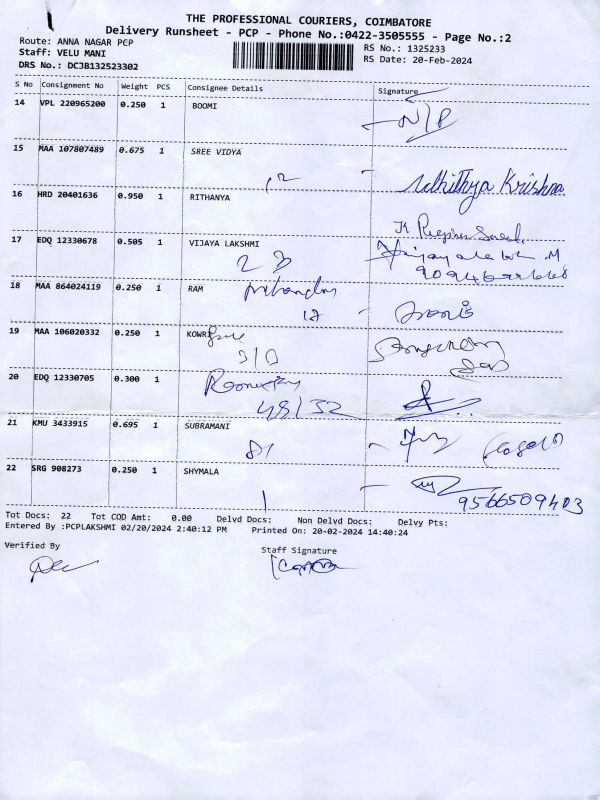 THE PROFESSIONAL COURIERS, COIMBATORE
Delivery Runsheet - PCP - Phone No.:0422-3505555 - Page No.:2
Route: ANNA NAGAR PCP
Staff: VELU MANI
DRS No.: DCJB132523302
RS No.: 1325233
RS Date: 20-Feb-2024
S No Consignment No Weight PCS Consignee Details Signature
14 VPL 220965200 0.250 1 BOOMI
N/P
15 MAA 107807489 0.675 1 SREE VIDYA
12 Adhithya Krishna
16 HRD 20401636 0.950 1 RITHANYA
17 EDQ 12330678 0.505 1 VIJAYA LAKSHMI
23
18 MAA 864024119 0.250 1 RAM
17
19 MAA 106020332 0.250 1 KOWR
20 EDQ 12330705 0.300 1
48/32
21 KMU 3433915 0.695 1 SUBRAMANI
81
22 SRG 908273 0.250 1 SHYMALA
9566509403
Tot Docs: 22 Tot COD Amt: 0.00 Delvd Docs: Non Delvd Docs: Delvy Pts:
Entered By :PCPLAKSHMI 02/20/2024 2:40:12 PM Printed On: 20-02-2024 14:40:24
Verified By
Staff Signature